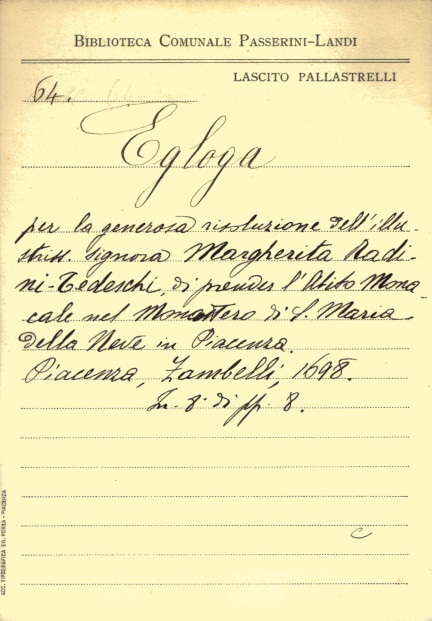 BIBLIOTECA COMUNALE PASSERINI-LANDI
LASCITO PALLASTRELLI
64.
Egloga
per la generosa risoluzione dell'illu-
striss. signora Margherita Radi-
ni-Tedeschi, di prender l'Abito Mona-
cale nel Monastero di S. Maria
della Neve in Piacenza.
Piacenza, Zambelli, 1698.
In 8° di pp. 8.
C
SOC. TIPOGRAFICA ED. PORTA - PIACENZA